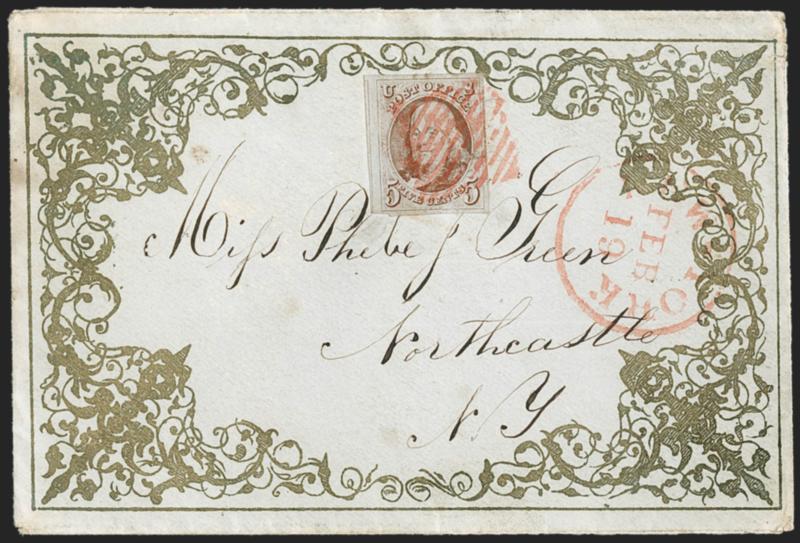 U S
POST OFFICE
5 FIVE CENTS 5
Miss Phebe J Green
Northcastle
N. Y
YORK
FEB
19